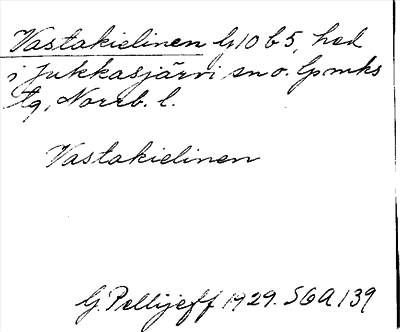 Vastakielinen G10 b 5, hed
i Jukkasjärvi sn o. lpmks
tg, Norrb. l.
Vastakielinen
G. Pellijeff 1929. SGA 139